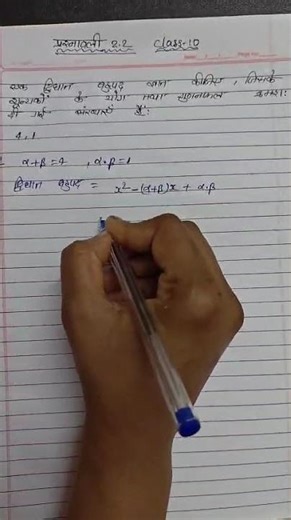 प्रश्नावली 2.2 Class-10
एक द्विघात बहुपद ज्ञात कीजिए, जिसके
शून्यकों के योग तथा गुणनफल क्रमशः
दी गई संख्याएँ हैं:
4, 1
α+β=4 , α.β=1
द्विघात बहुपद = x² - (α+β)x + α.β